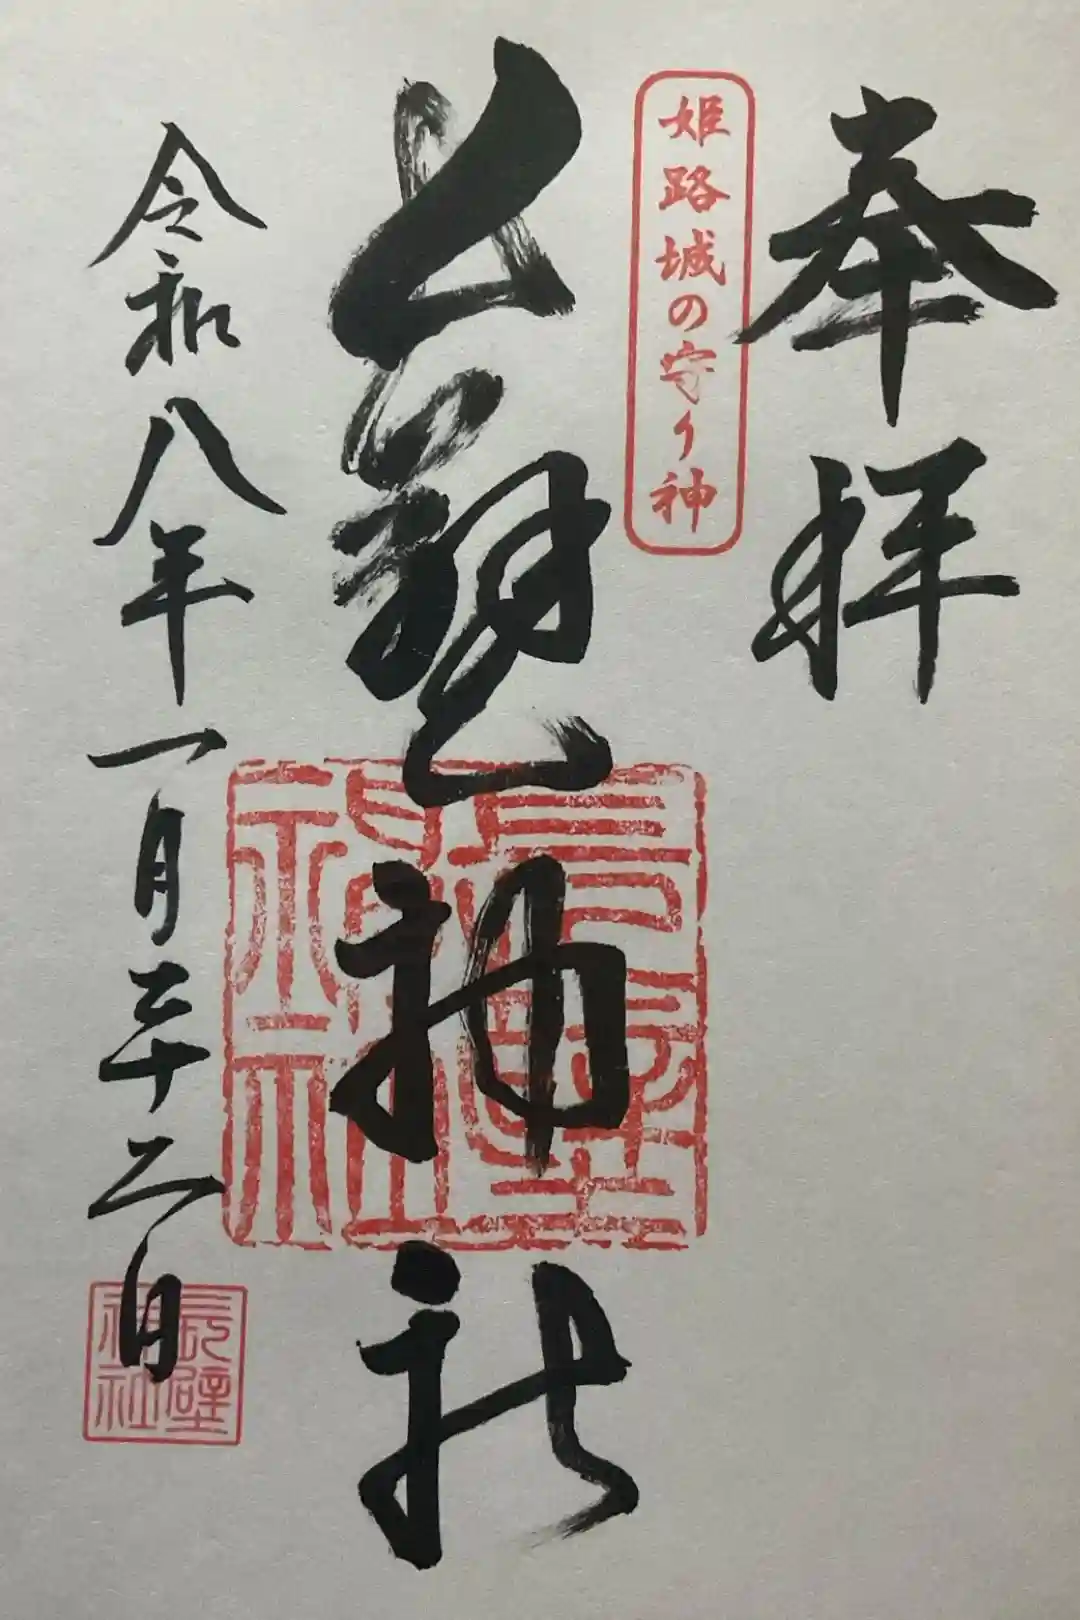 奉拝
姫路城の守り神
長壁神社
長壁神社
令和八年一月二十二日
長壁神社